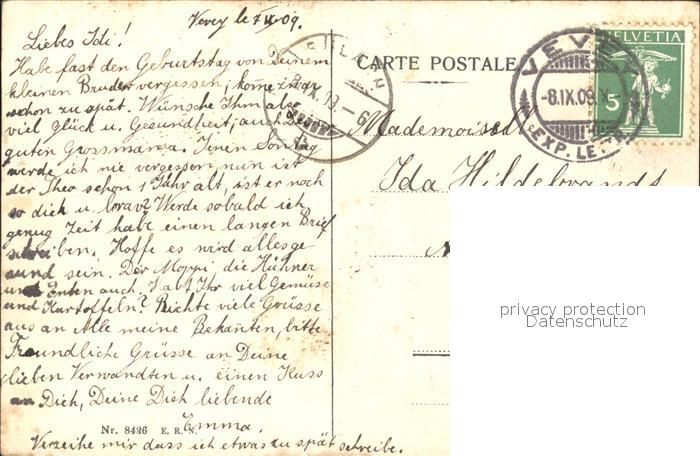 Vevey le 7 IX 09.
Liebes Idi!
Habe fast den Geburtstag von Deinem
kleinen Bruder vergessen, kom̄e zwar
schon zu spät. Wünsche Ihm also
viel Glück u. Gesundheit, auch Der
guten Grossmama. Jenen Sontag
werde ich nie vergessen, nun ist
der Theo schon 1 Jahr alt, ist er noch
so dick u. brav? Werde sobald ich
genug Zeit habe einen langen Brief
schreiben. Hoffe es wird alles ge-
sund sein. Der Moppi, die Hühner
und Enten auch. Habt Ihr viel Gemüse
und Kartoffeln? Richte viele Grüsse
aus an Alle meine Bekan̄ten, bitte
Freundliche Grüsse an Deine
lieben Verwandten u. einen Kuss
an Dich, Deine Dich liebende
Emma.
Nr. 8426 E. R. N.
Verzeihe mir dass ich etwas zu spät schreibe.
CARTE POSTALE
HELVETIA
5
VEVEY
-8.IX.09.X-
EXP. LETTR.
Mademoiselle
Ida Hildebrandt
privacy protection
Datenschutz